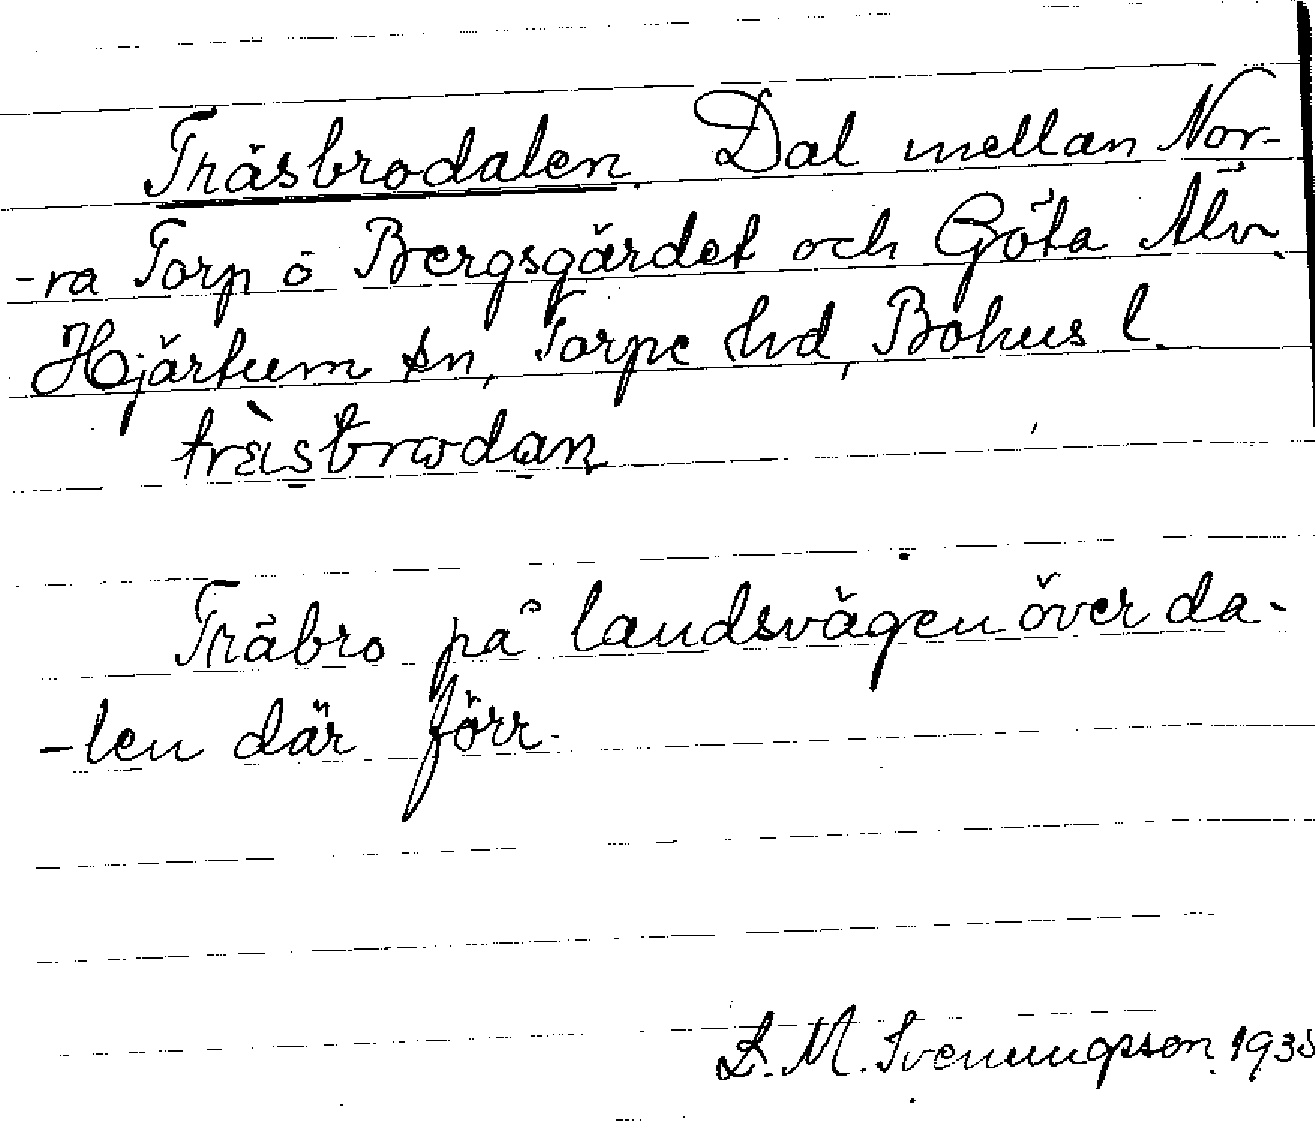 Träsbrodalen. Dal mellan Nor-
-ra Torp o Bergsgärdet och Göta Älv.
Hjärtum sn, Torpe hd, Bohus l.
Träbro på landsvägen över da-
-len där förr.
L. M. Svenungsson 1935